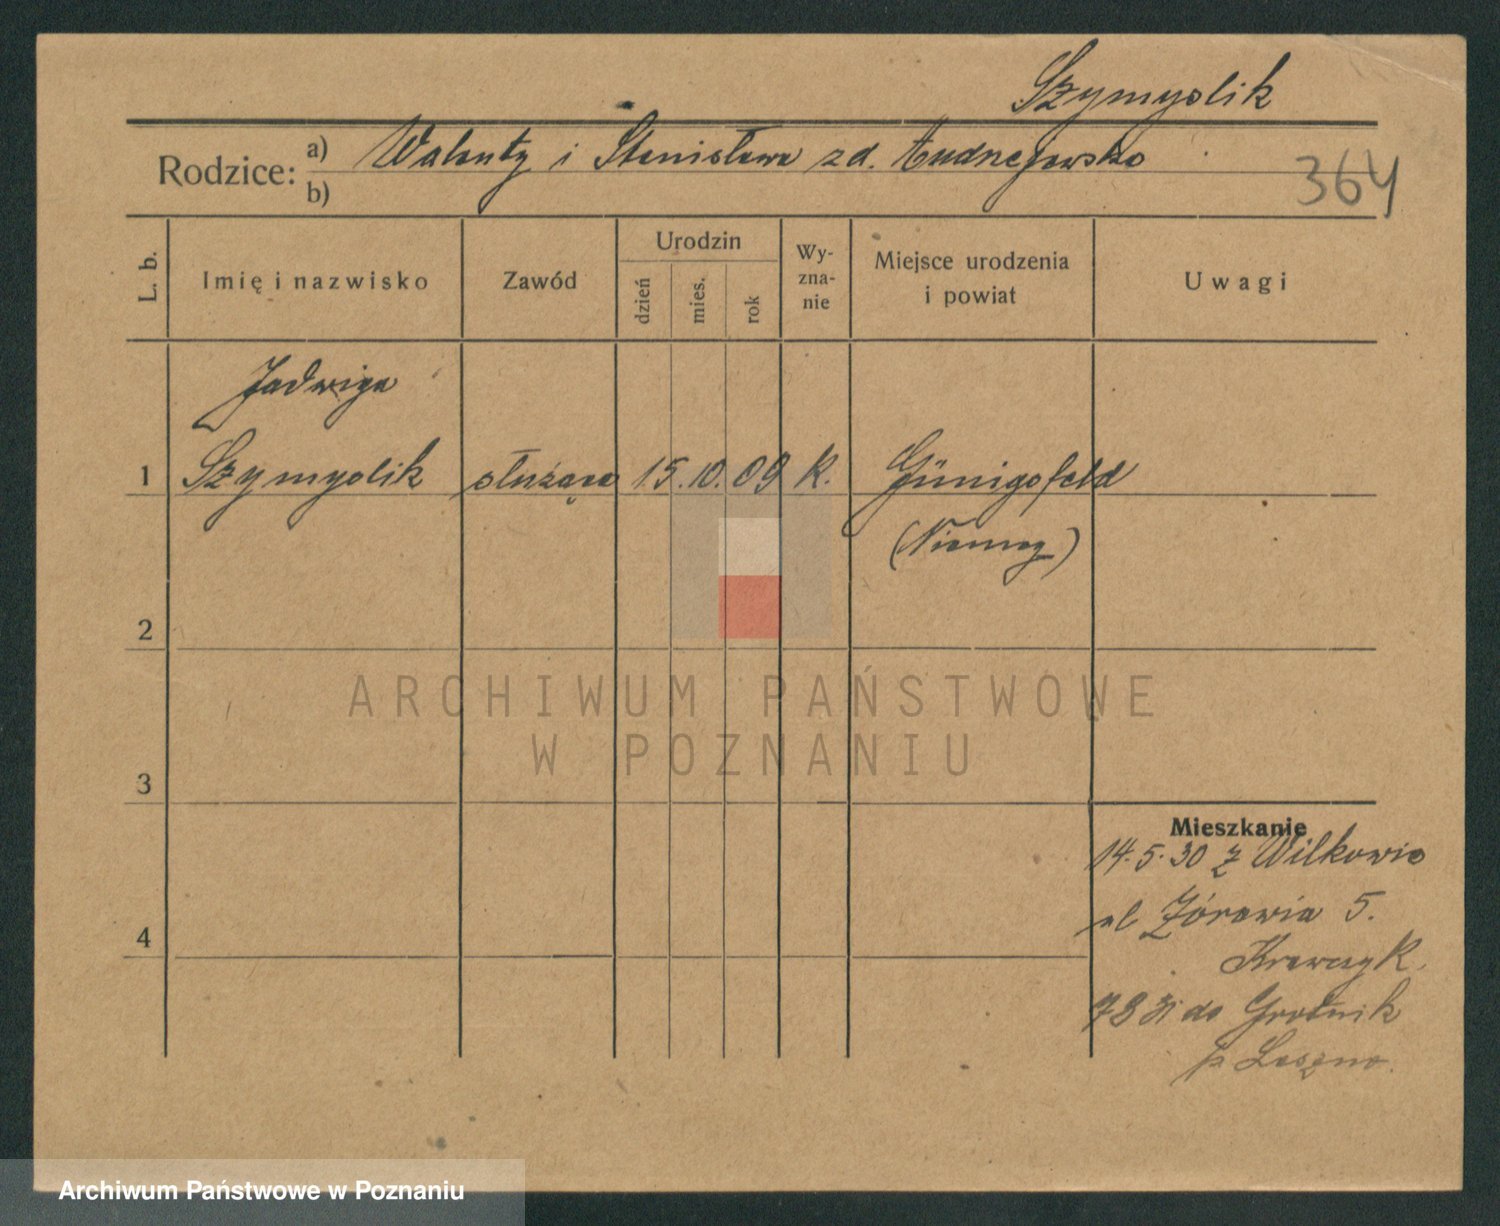 Szymyslik
Rodzice: a) Walenty i Stanisława zd. Andrzejewska
b)
364
L. b.
Imię i nazwisko
Zawód
Urodzin
dzień
mies.
rok
Wy-
zna-
nie
Miejsce urodzenia
i powiat
Uwagi
Jadwiga
1 Szymyslik służąca 15. 10. 09 K. Günigsfeld
(Niemcy)
2
3
4
ARCHIWUM PAŃSTWOWE
W POZNANIU
Mieszkanie
14.5.30 z Wilkowic
ul Żórawia 5.
Krawczyk.
31 do Grotnik
p Leszno.
Archiwum Państwowe w Poznaniu